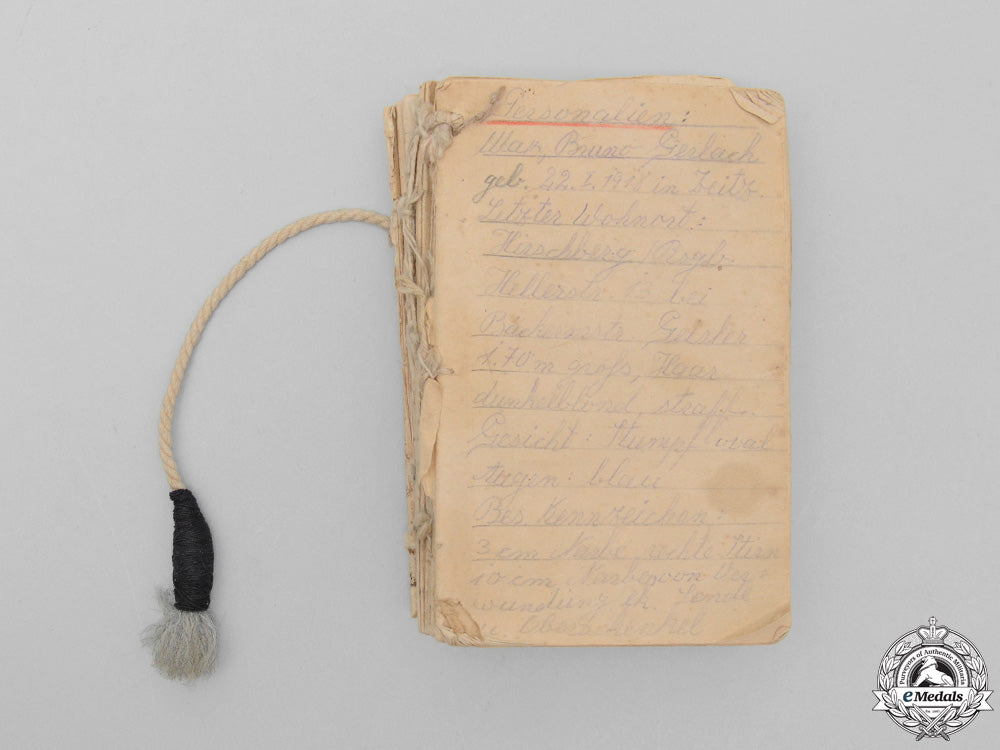 Personalien:
Max, Bruno Gerlach
geb. 22.I.1918 in Zeitz.
Letzter Wohnort:
Hirschberg / Rsgb.
Hellerstr. 13 bei
Bäckermstr. Geisler
1.70 m groß, Haar
dunkelblond, straff.
Gesicht: Stumpf oval
Augen: blau
Bes. Kennzeichen:
3 cm Narbe, rechte Stirn
10 cm Narbe von Ver=
wundung lk.
u. Oberschenkel
Purveyors of Authentic Militaria
eMedals